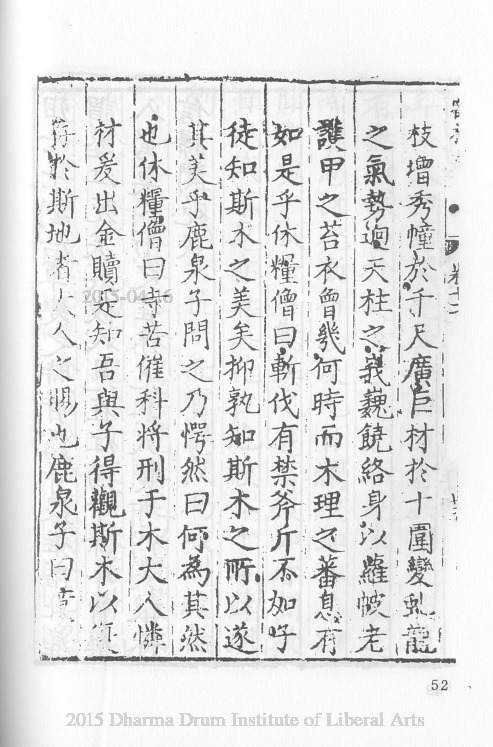 卷十二
枝增秀幢於千尺廣巨材於十圍變虬龍
之氣勢逈天柱之峩巍饒絡身以蘿帔老
護甲之苔衣曾幾何時而木理之蕃息有
如是乎休糧僧曰斬伐有禁斧斤不加吁
徒知斯木之美矣抑孰知斯木之所以遂
其美乎鹿泉子問之乃愕然曰何為其然
也休糧僧曰寺苦催科将刑于木大人憐
材爰出金贖是知吾與子得觀斯木以
存於斯地者大人之賜也鹿泉子曰
2015-04-16
52
2015 Dharma Drum Institute of Liberal Arts